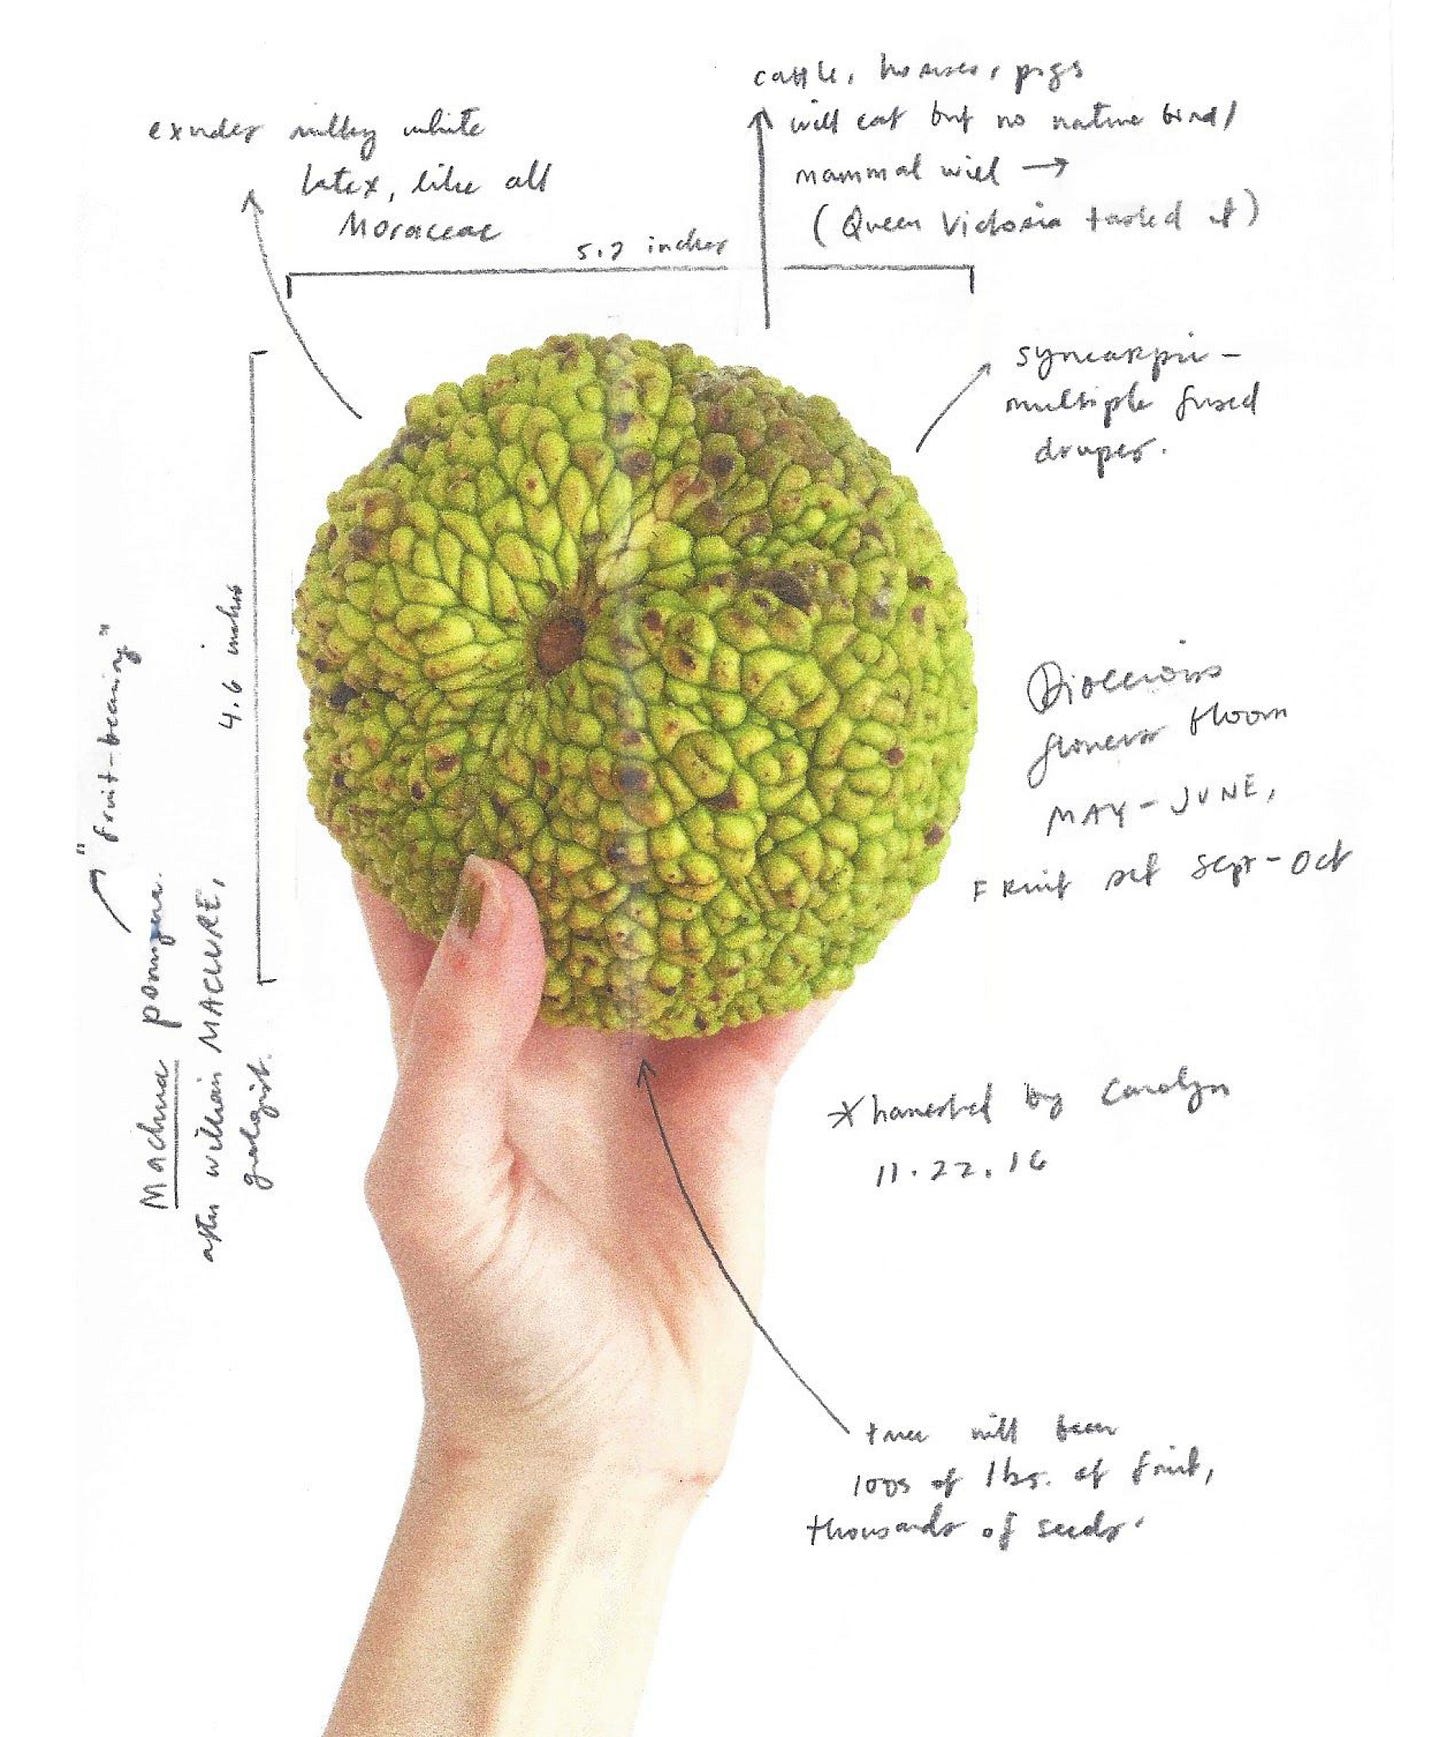 exudes milky white
latex, like all
Moraceae
cattle, horses, pigs
will eat but no native bird/
mammal will →
(Queen Victoria tasted it)
5.2 inches
syncarpic –
multiple fused
drupes.
4.6 inches
"fruit-bearing"
Maclura pomifera.
after William MACLURE,
geologist.
Dioecious
flowers bloom
MAY – JUNE,
Fruit set Sept – Oct
* harvested by Carolyn
11.22.16
tree will bear
100s of lbs. of fruit,
thousands of seeds.